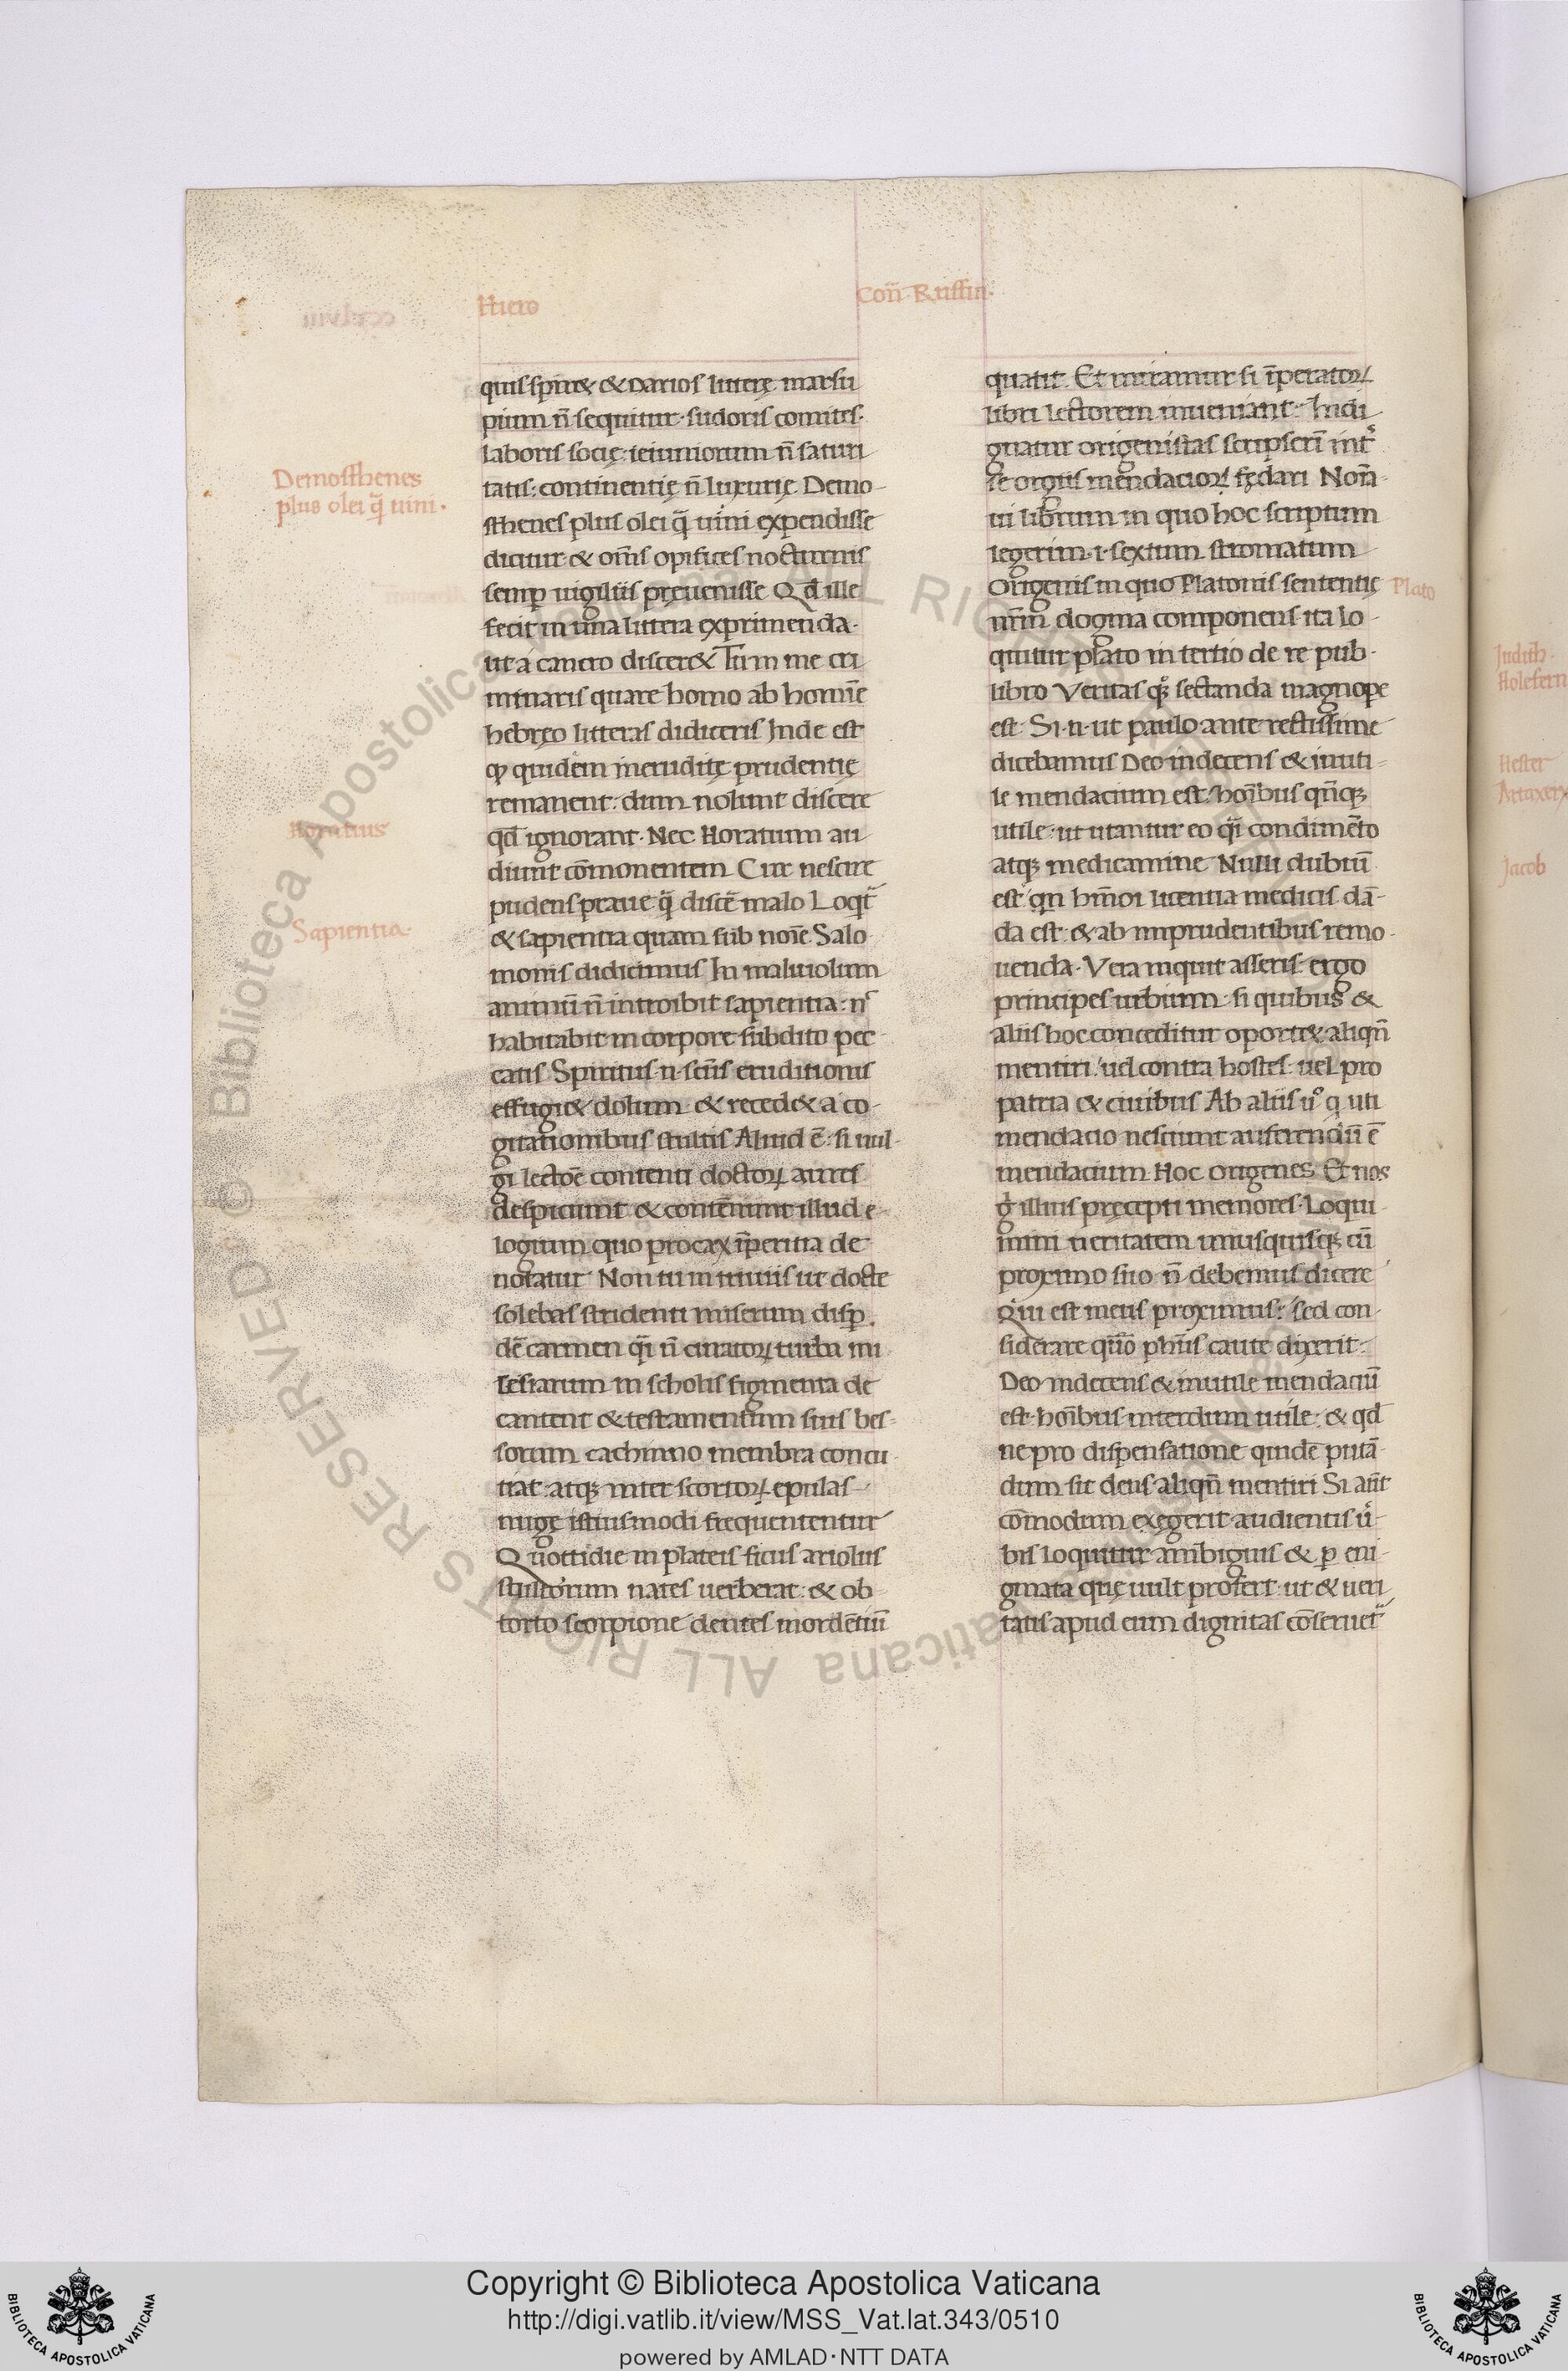 Hiero
Con̄ Ruffin·
quis spiret & Darios litterę marsu
pium n̄ sequitur· sudoris comites·
laboris socię: ieiuniorum n̄ saturi
tatis: continentię n̄ luxurię. Demo-
Demosthenes
plus olei q̄ uini·
sthenes plus olei q̄ uini expendisse
dicitur & om̄s opifices nocturnis
semꝑ uigiliis pręuenisse Qd̄ ille
fecit in una littera exprimenda·
ut a canero discer& Tu in me cri
minaris quare homo ab homīe
hebręo litteras didiceris Inde est
ꝙ quidem ineruditę prudentię
remanent: dum nolunt discere
Horatius
qd̄ ignorant· Nec Horatium au
diunt cōmonentem Cur nescire
pudens praue q̄ discē malo Loqt̄
Sapientia·
& sapientia quam sub noīe Salo
monis didicimus In maliuolam
animū n̄ introibit sapientia: n̄
habitabit in corpore subdito pec
catis Spiritus·n·scūs eruditionis
effugi& dolum & reced& a co-
gitationibus stultis Aliud ē· si uul-
gi lectōe contenti doctoꝝ aures
despiciunt & contēnunt illud e-
logium quo procax īperitia de
notatur Non tu in triuiis ut docte
solebas stridenti miserum disꝑ.
dē carmen qī n̄ curatoꝝ turba mi
lesiarum in scholis figmenta de
cantent & testamentum suis bes-
sorum cachinno membra concu
tiat· atqꝫ inter scortoꝝ epulas
nugę istiusmodi frequententur
Quottidie in plateis fictus ariolus
stultorum nates uerberat: & ob
torto scorpione dentes mordētiū
quatit. Et miramur si īperatoꝝ
libri lectorem inueniant· Indi
gnatur origenistas scripserī int̄
se orgiis mendacioꝝ fędari Nom̄
ui librum in quo hoc scriptum
legerim·i·sextum stromatum
Origenis in quo Platonis sententię
Plato
nr̄m dogma componens· ita lo-
quitur plato in tertio de re pub·
libro Veritas qꝫ sectanda magnope
est· Si·n·ut paulo ante rectissime
dicebamus Deo indecens & inuti-
le mendacium est: hoībus qn̄cqꝫ
utile: ut utantur eo qī condimēto
atqꝫ medicamine Nulli dubiū
est qn̄ hm̄oi licentia medicis dā-
da est: & ab imprudentibus remo-
uenda· Vera inquit asseris: ergo
principes urbium· si quibus &
aliis hoc conceditur oport& aliqn̄
mentiri: uel contra hostes: uel pro
patria & ciuibus Ab aliis u͛o q uti
mendacio nesciunt auferendū ē
mendacium Hoc Origenes Et nos
g̊ illius pręcepti memores· Loqui
mini ueritatem unusquisqꝫ cū
proximo suo n̄ debemus dicere
Qui est meus proximus: sed con-
siderare quō ph̄us caute dixerit·
Deo indecens & inutile mendaciū
est· hoībus interdum utile: & qd̄
ne pro dispensatione quidē putā-
dum sit deus aliqn̄ mentiri Si aūt
cōmodum exegerit audientis u̇
bis loquitur ambiguis & ꝑ eni-
gmata quę uult profert: ut & ueri
tatis apud eum dignitas cōseruet͛
Judith·
Hester
Jacob
Copyright © Biblioteca Apostolica Vaticana
http://digi.vatlib.it/view/MSS_Vat.lat.343/0510
powered by AMLAD·NTT DATA
BIBLIOTECA APOSTOLICA VATICANA
BIBLIOTECA APOSTOLICA VATICANA
© Biblioteca Apostolica Vaticana ALL RIGHTS RESERVED